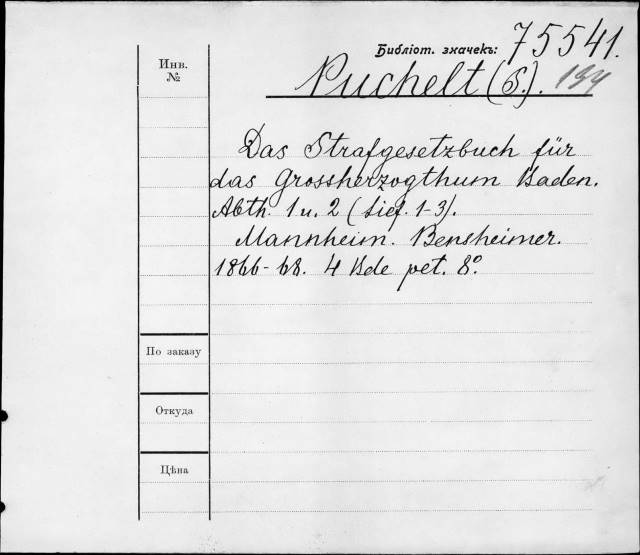 Библіот. значекъ: 75541.
Puchelt (S.). 194
Инв.
№
Das Strafgesetzbuch für
das Grossherzogthum Baden.
Abth. 1 u. 2 (Lief. 1-3).
Mannheim. Bensheimer.
1866-68. 4 Bde pet. 8º.
По заказу
Откуда
Цѣна